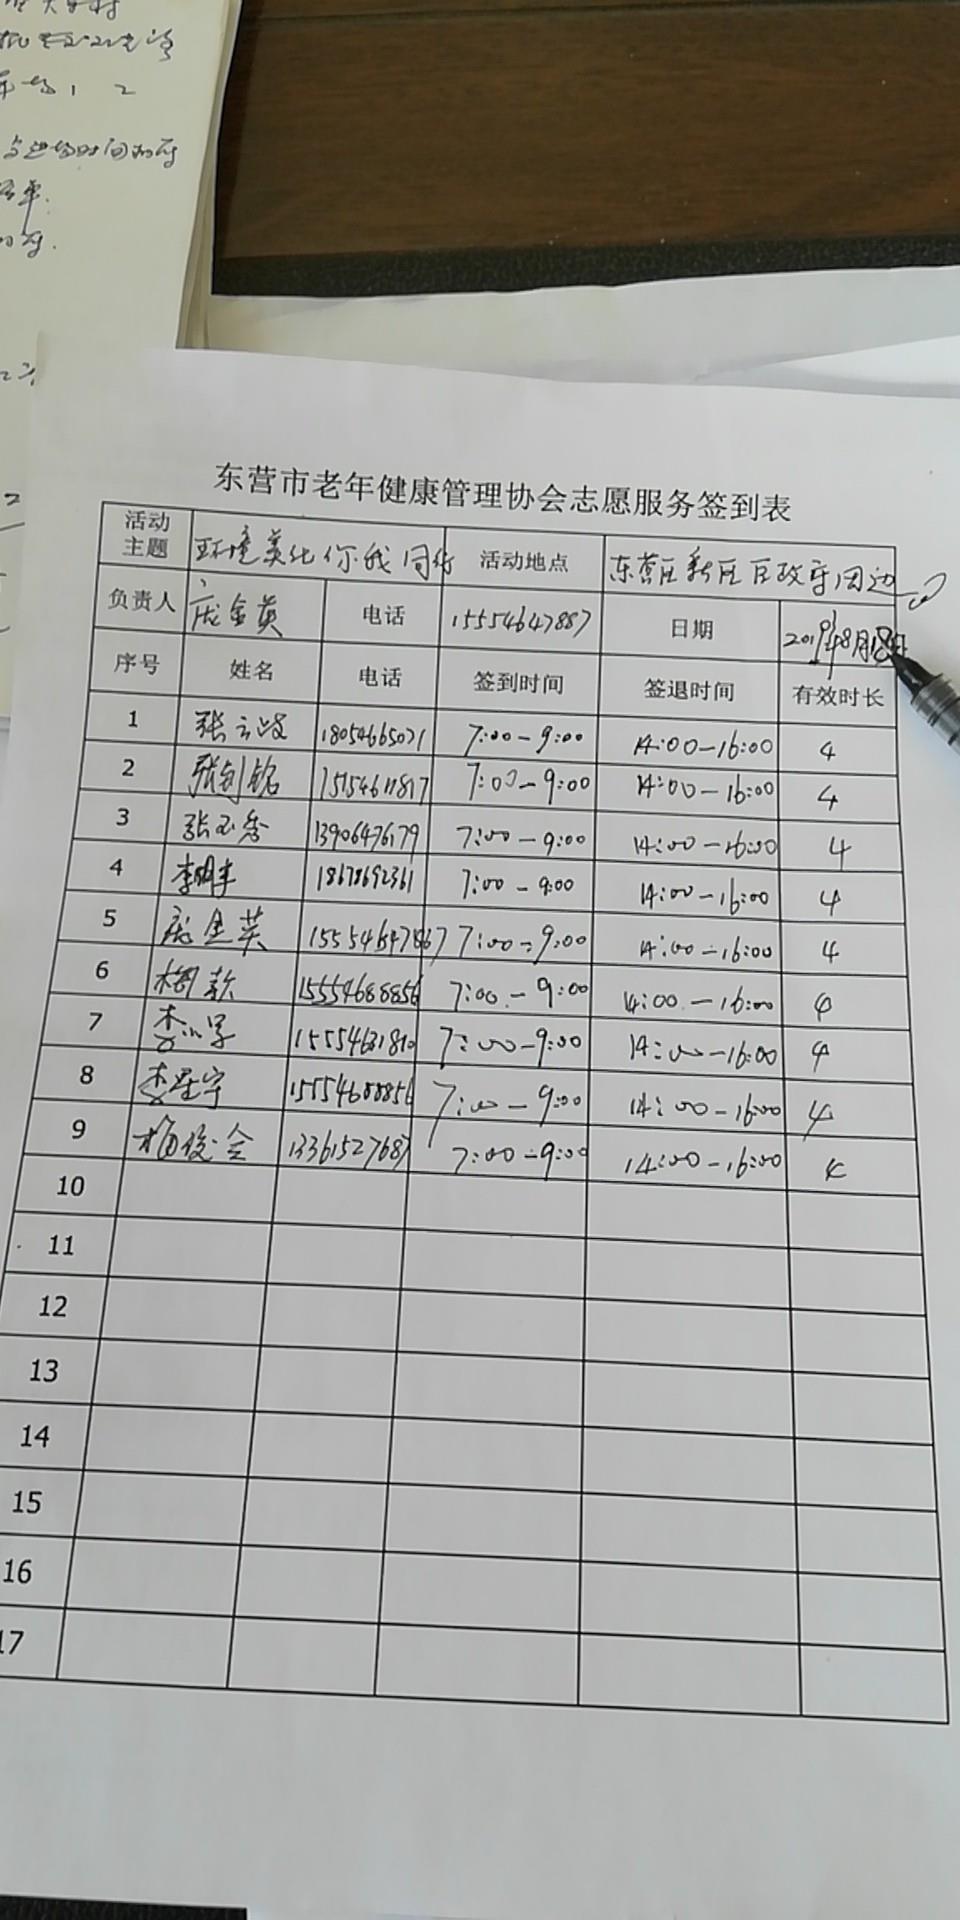 东营市老年健康管理协会志愿服务签到表
活动主题 环境美化你我同行 活动地点 东营区新区区政府周边
负责人 庞金英 电话 15554647887 日期 2019年8月18日
序号 姓名 电话 签到时间 签退时间 有效时长
1 张云 18054665071 7:00-9:00 14:00-16:00 4
2 7:00-9:00 14:00-16:00 4
3 张玉秀 13906476179 7:00-9:00 14:00-16:00 4
4 李明丰 18678692361 7:00-9:00 14:00-16:00 4
5 庞金英 7:00-9:00 14:00-16:00 4
6 15554688856 7:00-9:00 14:00-16:00 4
7 7:00-9:00 14:00-16:00 4
8 李星宇 15554688856 7:00-9:00 14:00-16:00 4
9 杨俊会 13361527687 7:00-9:00 14:00-16:00 4
10
11
12
13
14
15
16
17